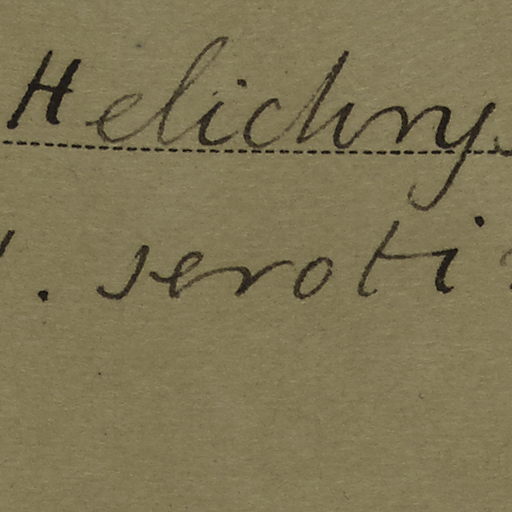 Helichry
. seroti